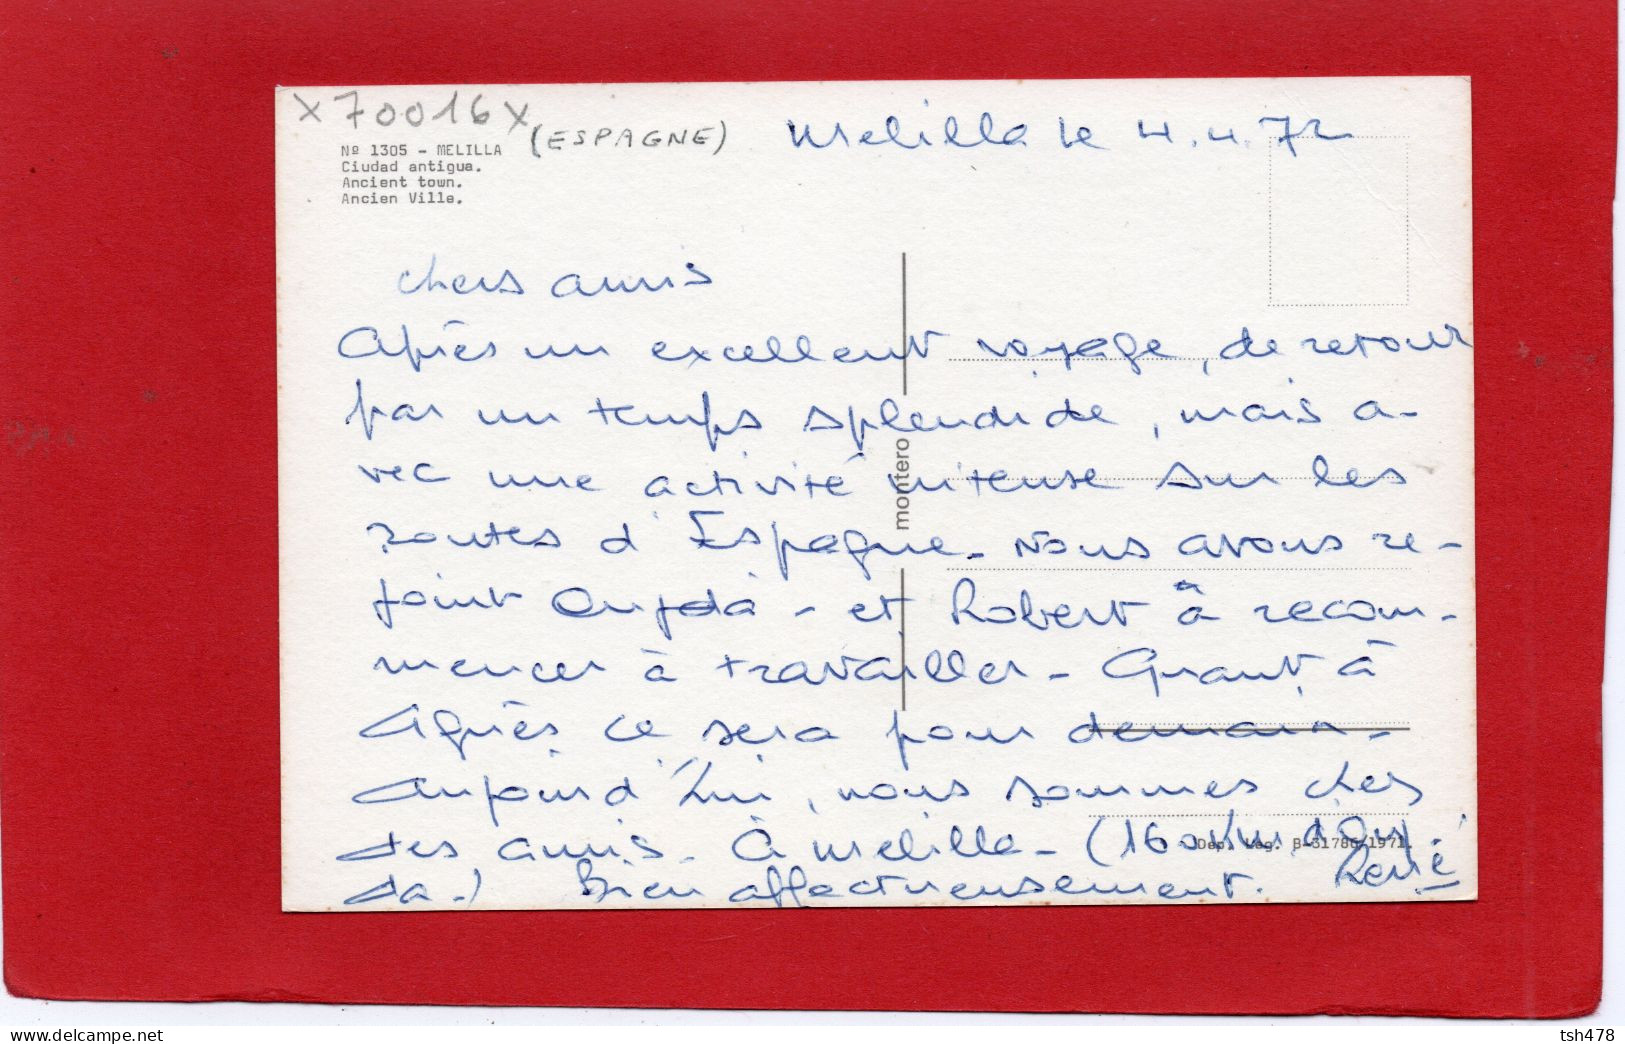 X 70016 X
(ESPAGNE)
Melilla le 4.4.72
Nº 1305 - MELILLA
Ciudad antigua.
Ancient town.
Ancien Ville.
chers amis
Après un excellent voyage, de retour
par un temps splendide, mais a-
vec une activité intense sur les
routes d'Espagne - nous avons re-
joint Oujda - et Robert à recom-
mencer à travailler - Quant à
Agnès ce sera pour demain -
aujourd'hui, nous sommes chez
des amis - à Melilla - (160 km d'Ouj-
da -) Bien affectueusement. René
montero
Dep. Leg. B-31786/1971.
delcampe.net
tsh478